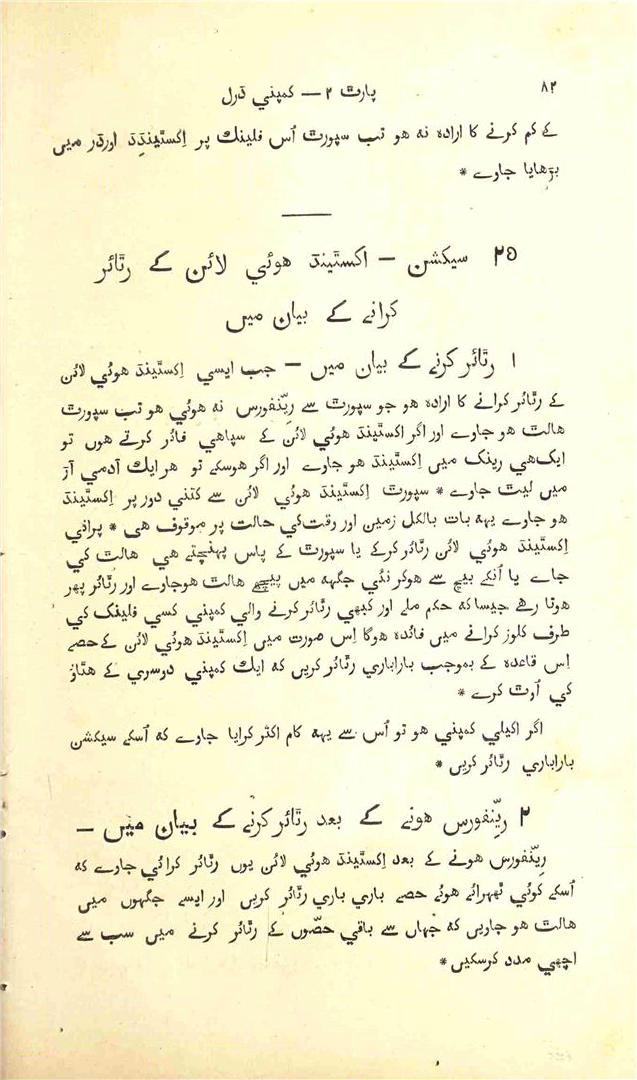 ۸۲
پارٹ ۲ — کمپني ڈرل
کے کم کرنے کا ارادہ نہ هو تب سپورٹ اُس فلینک پر اِکسٹینڈِڈ اورڈر میں
بڑهایا جاوے *
۲۵ سیکشن — اکسٹینڈ هوئي لائن کے رٹائر
کرانے کے بیان میں
۱ رٹائر کرنے کے بیان میں — جب ایسي اِکسٹینڈ هوئي لائن
کے رٹائر کرانے کا ارادہ هو جو سپورٹ سے رِینفورس نہ هوئي هو تب سپورٹ
هالٹ هو جاوے اور اگر اکسٹینڈ هوئي لائن کے سپاهي فائر کرتے هوں تو
ایک هي رینک میں اِکسٹینڈ هو جاوے اور اگر هوسکے تو هر ایک آدمي آڑ
میں لیٹ جاوے * سپورٹ اِکسٹینڈ هوئي لائن سے کتني دور پر اِکسٹینڈ
هو جاوے یہہ بات بالکل زمین اور وقت کي حالت پر موقوف هي * پراني
اِکسٹینڈ هوئي لائن رٹائر کرکے یا سپورٹ کے پاس پہنچتے هي هالٹ کي
جاے یا اُنکے بیچ سے هوکر نئي جگہہ میں پیچھے هالٹ هوجاوے اور رٹائر پهر
هوتا رهے جیسا کہ حکم ملے اور کبهي رٹائر کرنے والي کمپني کسي فلینک کي
طرف کلوز کرانے میں فائدہ هوگا اِس صورت میں اِکسٹینڈ هوئي لائن کے حصے
اِس قاعدہ کے بموجب باراباري رٹائر کریں کہ ایک کمپني دوسري کے هٹاؤ
کي آوٹ کرے *
اگر اکیلي کمپني هو تو اُس سے یہہ کام اکثر کرایا جاوے کہ اُسکے سیکشن
باراباري رٹائر کریں *
۲ رِینفورس هونے کے بعد رٹائر کرنے کے بیان میں —
رِینفورس هونے کے بعد اِکسٹینڈ هوئي لائن یوں رٹائر کرائي جاوے کہ
اُسکے کوئي ٹهہرائے هوئے حصے باري باري رٹائر کریں اور ایسے جگہوں میں
هالٹ هو جاویں کہ جہاں سے باقي حصّوں کے رٹائر کرنے میں سب سے
اچهي مدد کرسکیں *